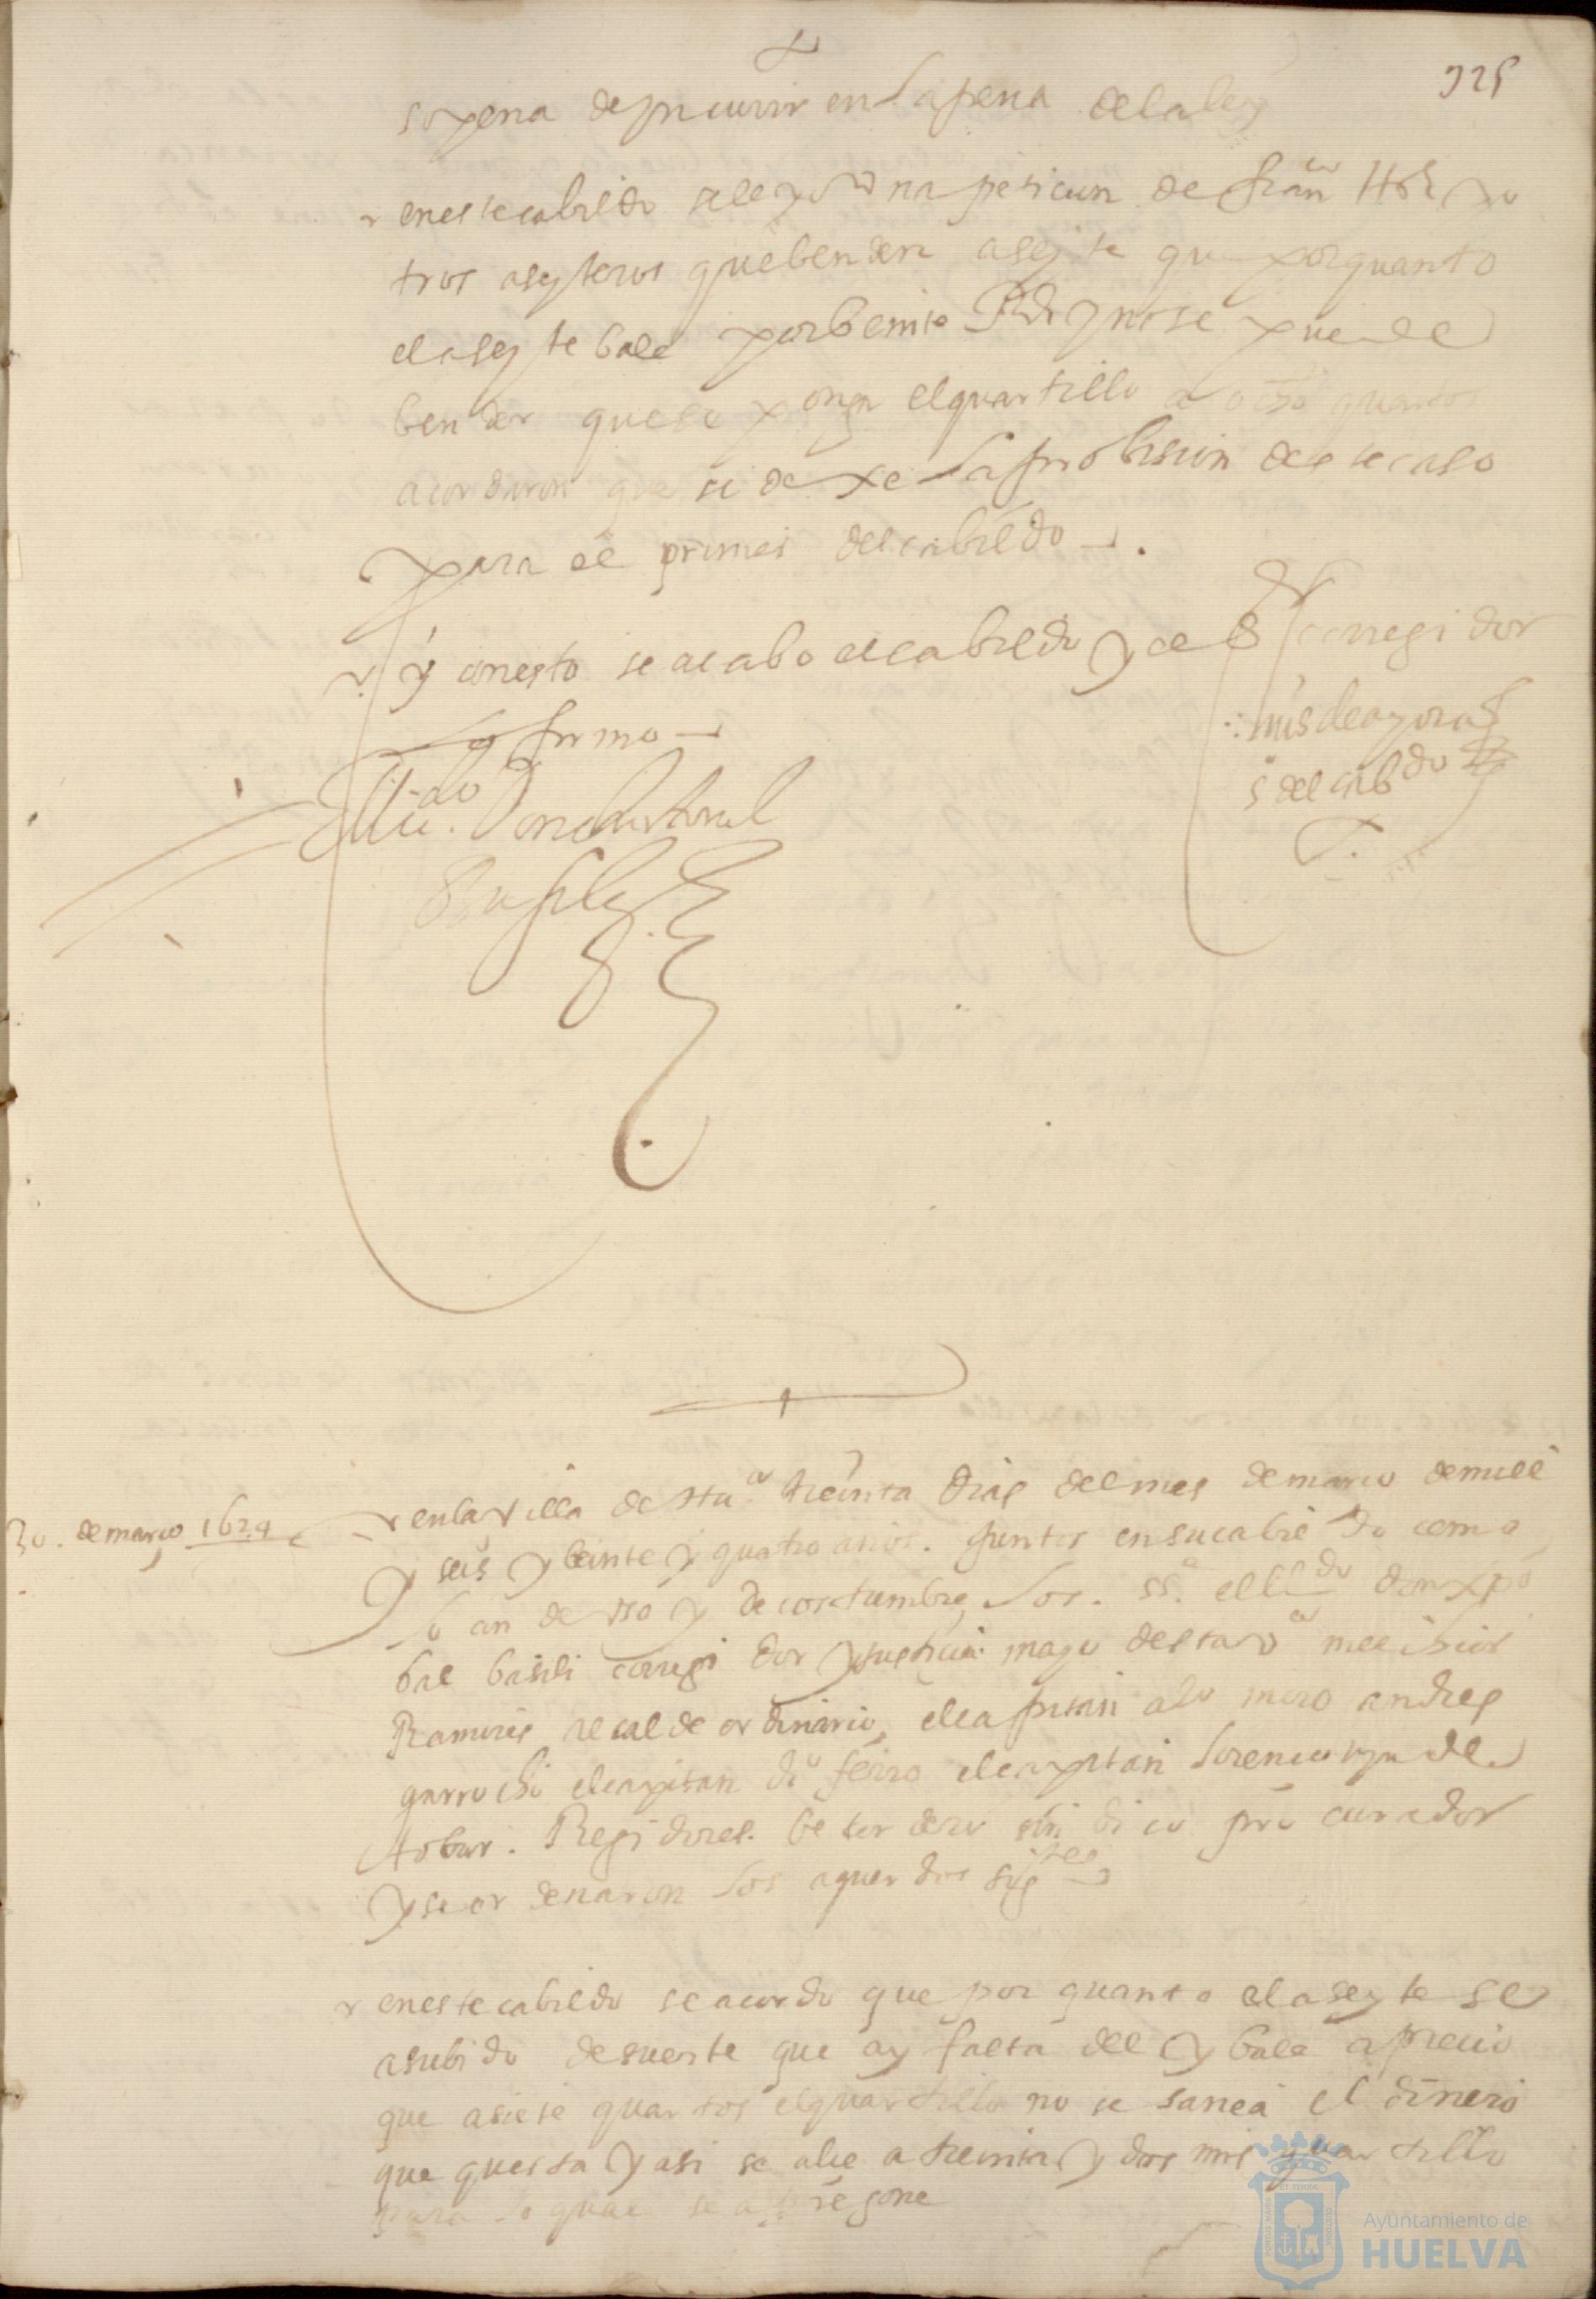 325
so pena de yncurrir en la pena de la ley
en este cabildo se leyo una peticion de fran^co y o
tros aseyteros que benden aseyte que por quanto
el aseyte bale por beinte R^s y no se puede
bender que se ponga el quartillo a ocho quartos
acordaron que se dexe la probision deste caso
para el primer cabildo
y con esto se acabo el cabildo y el s^r corregidor
lo firmo
del cab^do
Ell li^do Don christoual
Basili
30. de março 1624
en la villa de Hu^a treinta dias del mes de março de mill
y seis y beinte y quatro años. juntos en su cabildo como
lo an de uso y de costumbre los. ss^s. el l^do don xpo
bal basili corregidor y justicia mayo desta v^a melchior
Ramires alcalde ordinario, el capitan alo mero andres
garrocho el capitan di^o ferro el capitan lorenco de
tobar. Regidores. sindico procurador
y se ordenaron los aquerdos sig^tes
en este cabildo se acordo que por quanto el aseyte se
a subido de suerte que ay falta del y bale a precio
que a siete quartos el quartillo no se sanea el dinero
que questa y asi se alce a treinta y dos mrs quartillo
para lo qual se apregone
Ayuntamiento de
HUELVA